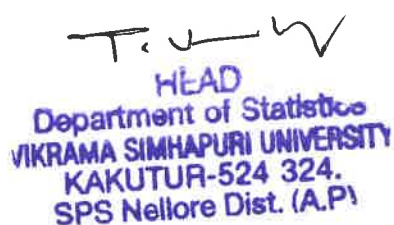 HEAD
Department of Statistics
VIKRAMA SIMHAPURI UNIVERSITY
KAKUTUR-524 324.
SPS Nellore Dist. (A.P)